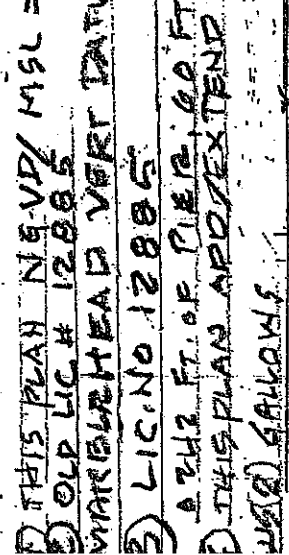 1) THIS PLAN NGVD/MSL =
2) OLD LIC # 12885
MARBLEHEAD VERT DATU
3) LIC. NO 12885
A 242 FT. OF PIER, 60 FT
THIS PLAN ADD/EXTEND
(2) GALLOWS